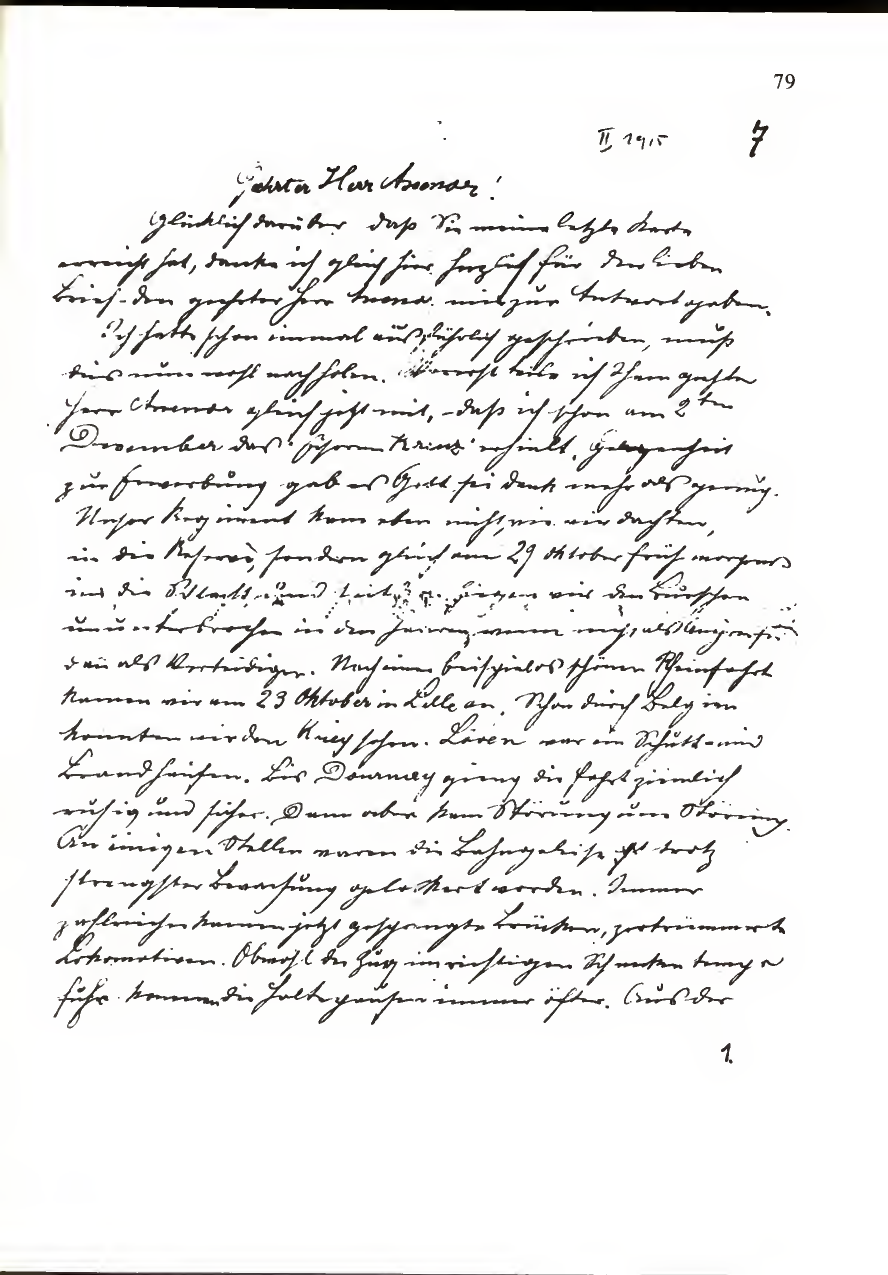 79
II 1915
7
Geehrter Herr Assessor!
Glücklich darüber daß Sie meine letzte Karte
erreicht hat, danke ich gleich hier herzlich für den lieben
Brief den geehrter Herr mir zur Antwort gaben.
Ich hatte schon einmal ausführlich geschrieben, muß
dies nun wohl nachholen. Vorerst teile ich Ihnen geehrter
Herr Assessor gleich jetzt mit, - daß ich schon am 2ten
Dezember das "Eiserne Kreuz" erhielt. Gelegenheit
zur Erwerbung gab es Gott sei dank mehr als genug.
Unser Regiment kam eben nicht, wie wir dachten,
in die Reserve, sondern gleich am 29 Oktober früh morgens
in die Schlacht und liegen wir den Burschen
ununterbrochen in den wenn nicht als Angreifer
dan als Verteidiger. Nach einer beispiellos schönen Rheinfahrt
kamen wir am 23 Oktober in Lille an. Schon durch Belgien
konnten wir den Krieg sehen. Löven war ein Schutt- und
Brandhaufen. Bis Dournay gieng die Fahrt ziemlich
ruhig und sicher. Dann aber kam Störung um Störung.
An einigen Stellen waren die Bahngeleise trotz
strengster Bewachung gelockert worden. Immer
zahlreicher kamen jetzt gesprengte Brücken, zertrümmerte
Lokomotiven. Obwohl der Zug im richtigen Schneckentempo
fuhr kamen die Haltepausen immer öfter. Aus der
1.